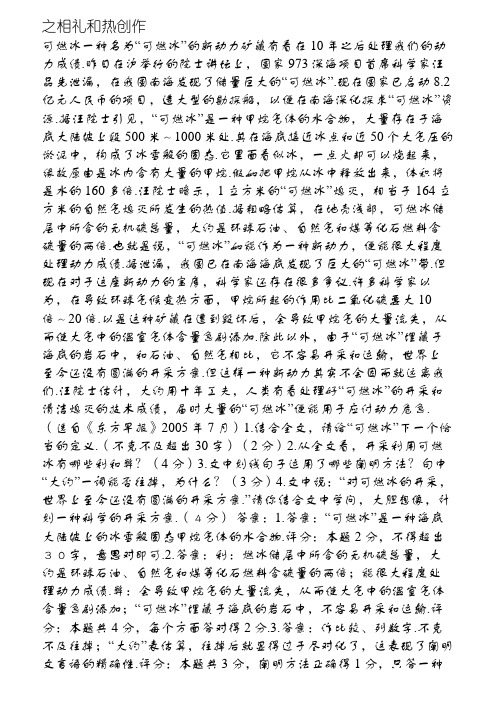 之相礼和热创作
可燃冰一种名为“可燃冰”的新动力矿藏有看在10年之后处理我们的动
力成绩.昨日在沪举行的院士讲坛上，国家973深海项目首席科学家汪
品先泄漏，在我国南海发现了储量巨大的“可燃冰”.现在国家已启动8.2
亿元人民币的项目，造大型的勘探船，以便在南海深化探求“可燃冰”资
源.据汪院士引见，“可燃冰”是一种甲烷气体的水合物，大量存在于海
底大陆坡上段500米～1000米处.其在海底接近冰点和近50个大气压的
淤泥中，构成了冰雪般的固态.它里面看似冰，一点火却可以烧起来，
缘故原由是冰内含有大量的甲烷.假如把甲烷从冰中释放出来，体积将
是水的160多倍.汪院士暗示，1立方米的“可燃冰”熄灭，相当于164立
方米的自然气熄灭所发生的热值.据粗略估算，在地壳浅部，可燃冰储
层中所含的无机碳总量，大约是环球石油、自然气和煤等化石燃料含
碳量的两倍.也就是说，“可燃冰”如能作为一种新动力，便能很大程度
处理动力成绩.据泄漏，我国已在南海海底发现了巨大的“可燃冰”带.但
现在对于这座新动力的宝库，科学家还存在很多争议.许多科学家以
为，在导致环球气候变热方面，甲烷所起的作用比二氧化碳要大10
倍～20倍.以是这种矿藏在遭到毁坏后，会导致甲烷气的大量流失，从
而使大气中的温室气体含量急剧添加.除此以外，由于“可燃冰”埋藏于
海底的岩石中，和石油、自然气相比，它不容易开采和运输，世界上
至今还没有圆满的开采方案.但这样一种新动力其实不会因而就远离我
们.汪院士估计，大约用十年工夫，人类有看处理好“可燃冰”的开采和
清洁熄灭的技术成绩，届时大量的“可燃冰”便能用于应付动力危急.
（选自《东方早报》2005年7月）1.结合全文，请给“可燃冰”下一个恰
当的定义.（不克不及超出30字）（2分）2.从全文看，开采利用可燃
冰有哪些利和弊？（4分）3.文中划线句子运用了哪些阐明方法？句中
“大约”一词能否往掉，为什么？（3分）4.文中说：“对可燃冰的开采，
世界上至今还没有圆满的开采方案.”请你结合文中学问，大胆想像，计
划一种科学的开采方案.（４分） 答案：1.答案：“可燃冰”是一种海底
大陆坡上的冰雪般固态甲烷气体的水合物.评分：本题2分，不得超出
３０字，意思对即可.2.答案：利：燃冰储层中所含的无机碳总量，大
约是环球石油、自然气和煤等化石燃料含碳量的两倍；能很大程度处
理动力成绩.弊：会导致甲烷气的大量流失，从而使大气中的温室气体
含量急剧添加；“可燃冰”埋藏于海底的岩石中，不容易开采和运输.评
分：本题共4分，每个方面答对得2分.3.答案：作比较、列数字.不克
不及往掉；“大约”表估算，往掉后就显得过于尽对化了，这表现了阐明
文言语的精确性.评分：本题共3分，阐明方法正确得1分，只答一种